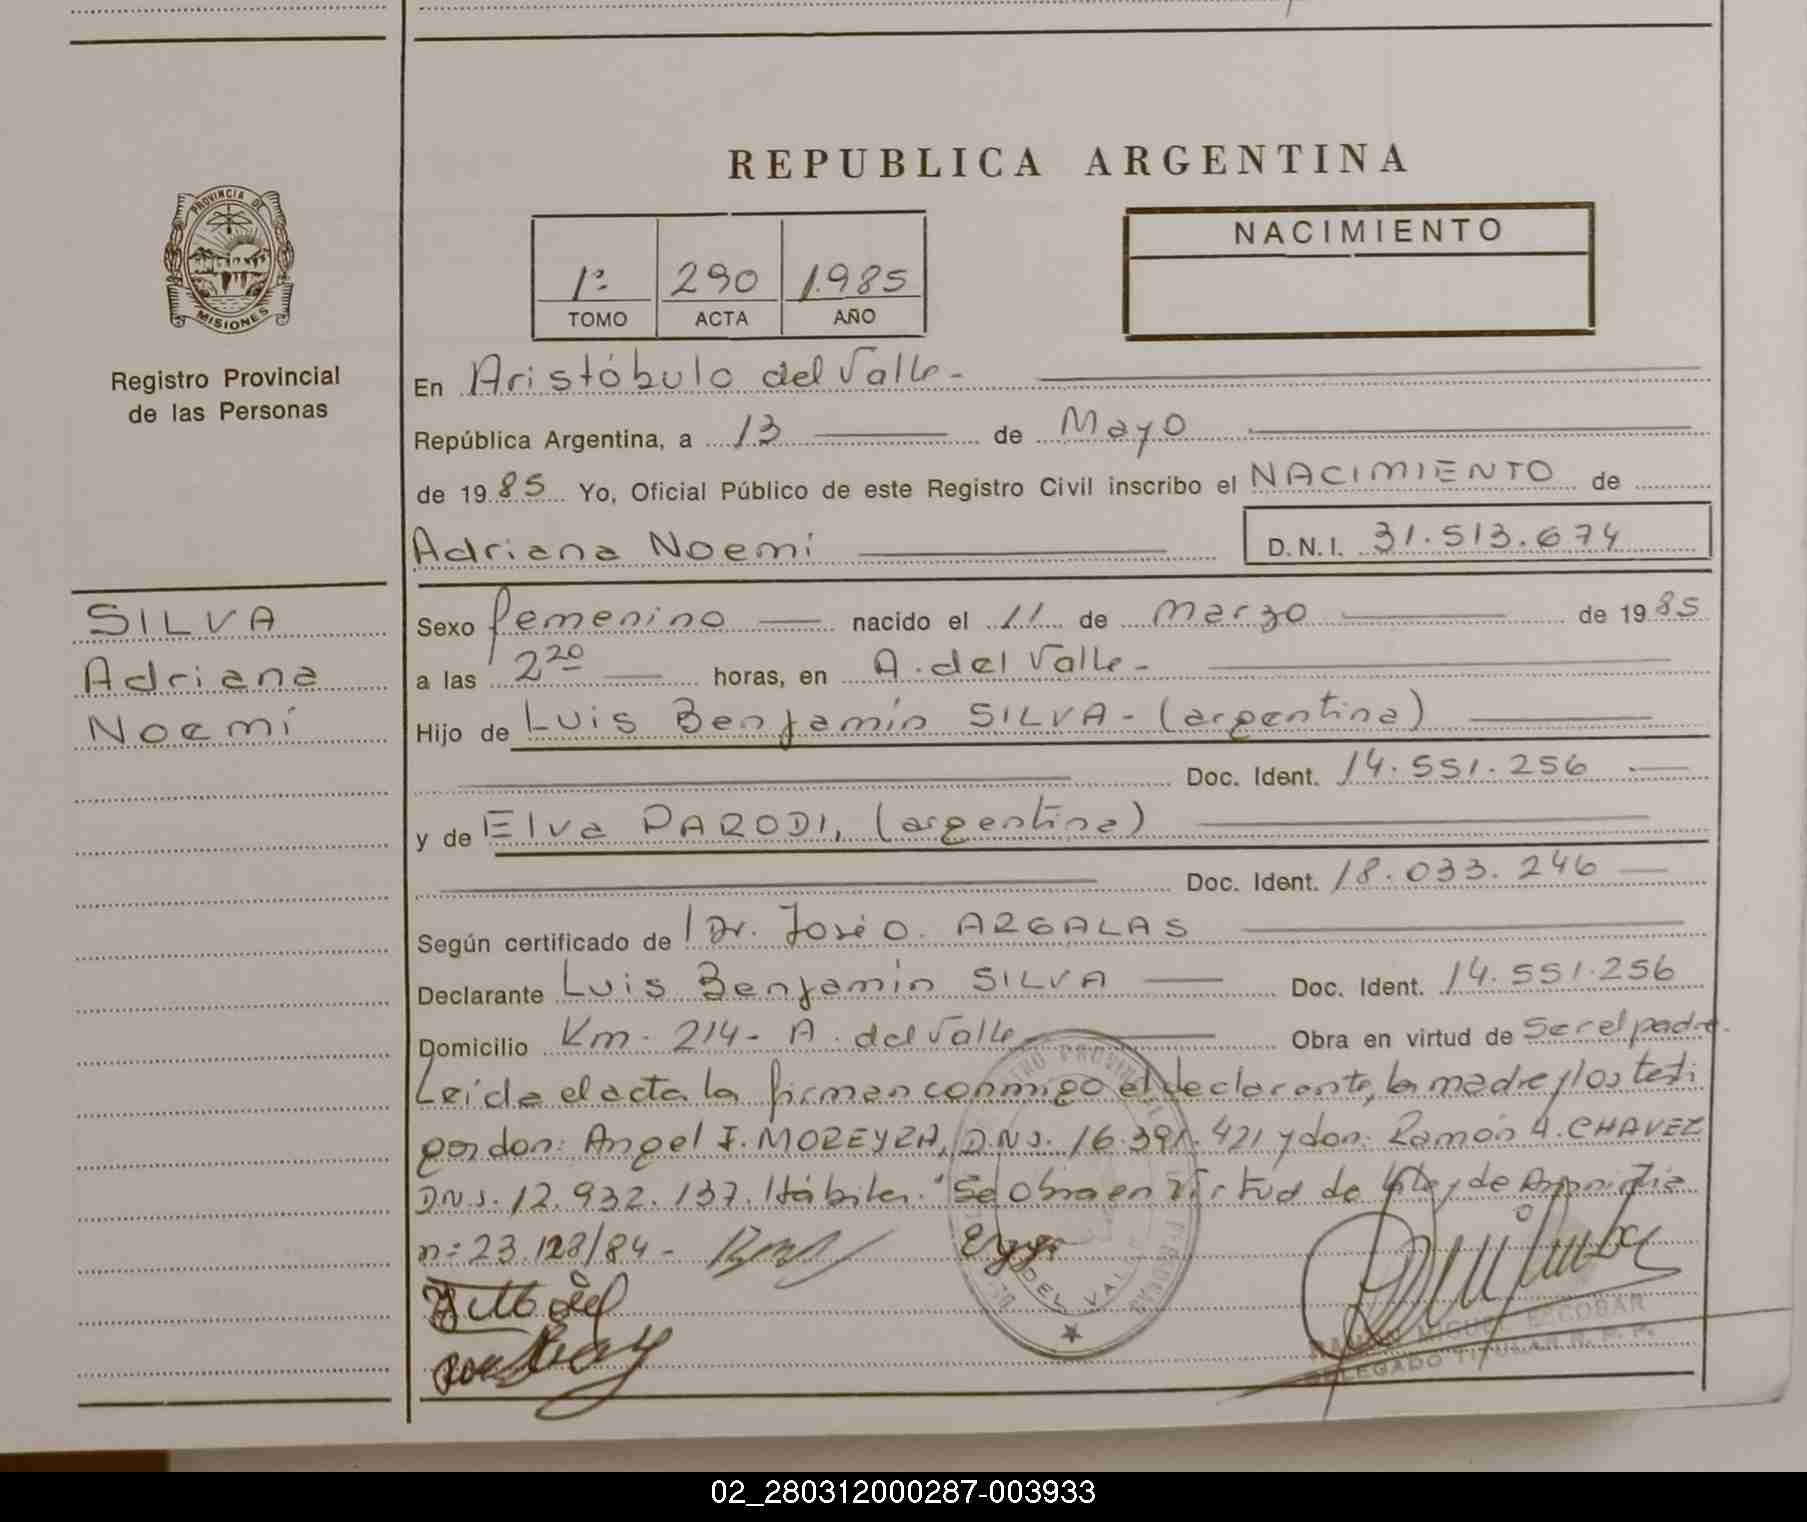 REPUBLICA ARGENTINA
PROVINCIA DE
MISIONES
Registro Provincial
de las Personas
1º 290 1985
TOMO ACTA AÑO
NACIMIENTO
En Aristóbulo del Valle-
República Argentina, a 13 de Mayo
de 1985 Yo, Oficial Público de este Registro Civil inscribo el NACIMIENTO de
Adriana Noemí D.N.I. 31.513.674
SILVA
Adriana
Noemí
Sexo femenino nacido el 11 de marzo de 1985
a las 2 20 horas, en A. del Valle-
Hijo de Luis Benjamín SILVA- (argentina)
Doc. Ident. 14.551.256
y de Elva PARODI, (argentina)
Doc. Ident. 18.033.246
Según certificado de Dr. José O. ARGALAS
Declarante Luis Benjamín SILVA Doc. Ident. 14.551.256
Domicilio Km. 214- A. del Valle Obra en virtud de ser el padre.
Leída el acta la firman conmigo el declarante, la madre y los testi
gos don: Angel I. MOREYRA, D.N.I. 16.391.421 y don: Ramón A. CHAVEZ
D.N.I. 12.932.137. Hábiles. "Se obra en virtud de la ley de Amnistía
nº 23.128/84-
DEL VALLE
RAMON MIGUEL ESCOBAR
DELEGADO TITULAR R. P. P.
02_280312000287-003933